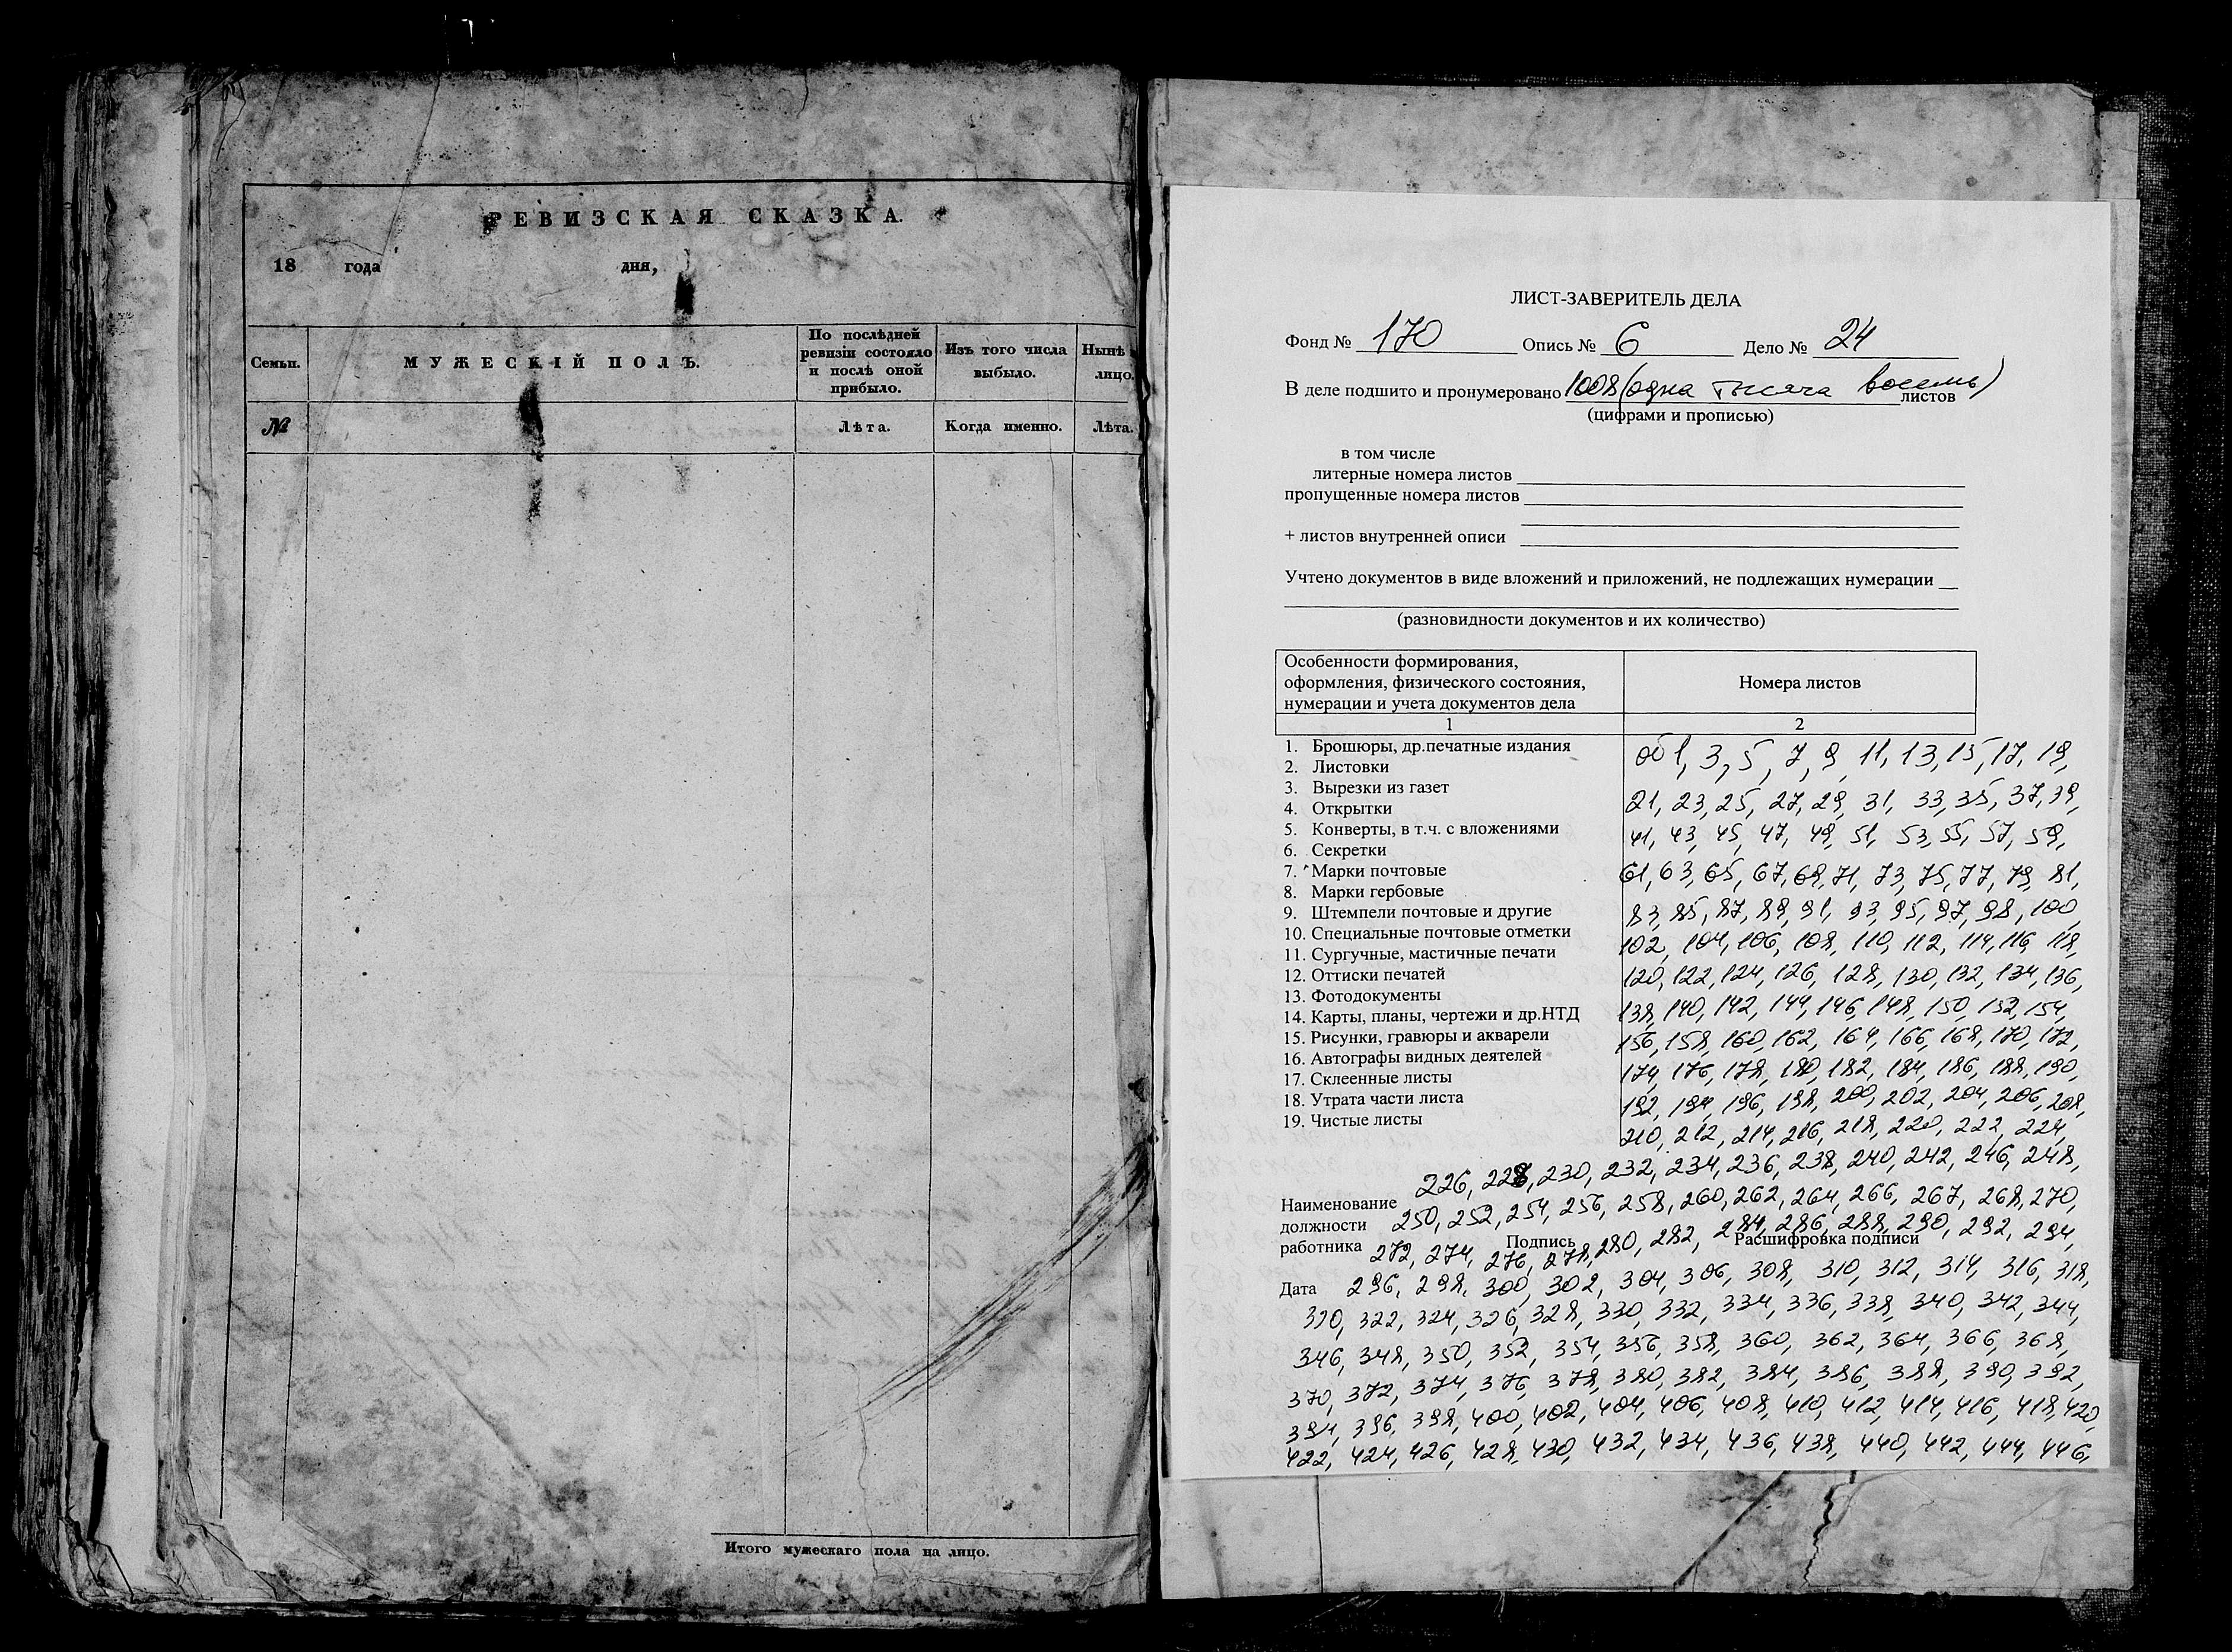 РЕВИЗСКАЯ СКАЗКА.
18 года дня,
Семьи.
МУЖЕСКІЙ ПОЛЪ.
По послѣдней ревизіи состояло и послѣ оной прибыло.
Изъ того числа выбыло.
Нынѣ лицо.
№
Лѣта.
Когда именно.
Лѣта.
Итого мужескаго пола на лицо.
ЛИСТ-ЗАВЕРИТЕЛЬ ДЕЛА
Фонд № 170 Опись № 6 Дело № 24
В деле подшито и пронумеровано 1008 (одна тысяча восемь) листов
(цифрами и прописью)
в том числе
литерные номера листов
пропущенные номера листов
+ листов внутренней описи
Учтено документов в виде вложений и приложений, не подлежащих нумерации
(разновидности документов и их количество)
Особенности формирования,
оформления, физического состояния,
нумерации и учета документов дела
Номера листов
1 2
1. Брошюры, др.печатные издания
2. Листовки
3. Вырезки из газет
4. Открытки
5. Конверты, в т.ч. с вложениями
6. Секретки
7. Марки почтовые
8. Марки гербовые
9. Штемпели почтовые и другие
10. Специальные почтовые отметки
11. Сургучные, мастичные печати
12. Оттиски печатей
13. Фотодокументы
14. Карты, планы, чертежи и др.НТД
15. Рисунки, гравюры и акварели
16. Автографы видных деятелей
17. Склеенные листы
18. Утрата части листа
19. Чистые листы
об 1, 3, 5, 7, 9, 11, 13, 15, 17, 19,
21, 23, 25, 27, 29, 31, 33, 35, 37, 39,
41, 43, 45, 47, 49, 51, 53, 55, 57, 59,
61, 63, 65, 67, 69, 71, 73, 75, 77, 79, 81,
83, 85, 87, 89, 91, 93, 95, 97, 98, 100,
102, 104, 106, 108, 110, 112, 114, 116, 118,
120, 122, 124, 126, 128, 130, 132, 134, 136,
138, 140, 142, 144, 146, 148, 150, 152, 154,
156, 158, 160, 162, 164, 166, 168, 170, 172,
174, 176, 178, 180, 182, 184, 186, 188, 190,
192, 194, 196, 198, 200, 202, 204, 206, 208,
210, 212, 214, 216, 218, 220, 222, 224,
226, 228, 230, 232, 234, 236, 238, 240, 242, 246, 248,
Наименование
250, 252, 254, 256, 258, 260, 262, 264, 266, 267, 268, 270,
должности
работника Подпись Расшифровка подписи
272, 274, 276, 278, 280, 282, 284, 286, 288, 290, 292, 294,
Дата 296, 298, 300, 302, 304, 306, 308, 310, 312, 314, 316, 318,
320, 322, 324, 326, 328, 330, 332, 334, 336, 338, 340, 342, 344,
346, 348, 350, 352, 354, 356, 358, 360, 362, 364, 366, 368,
370, 372, 374, 376, 378, 380, 382, 384, 386, 388, 390, 392,
394, 396, 398, 400, 402, 404, 406, 408, 410, 412, 414, 416, 418, 420,
422, 424, 426, 428, 430, 432, 434, 436, 438, 440, 442, 444, 446,